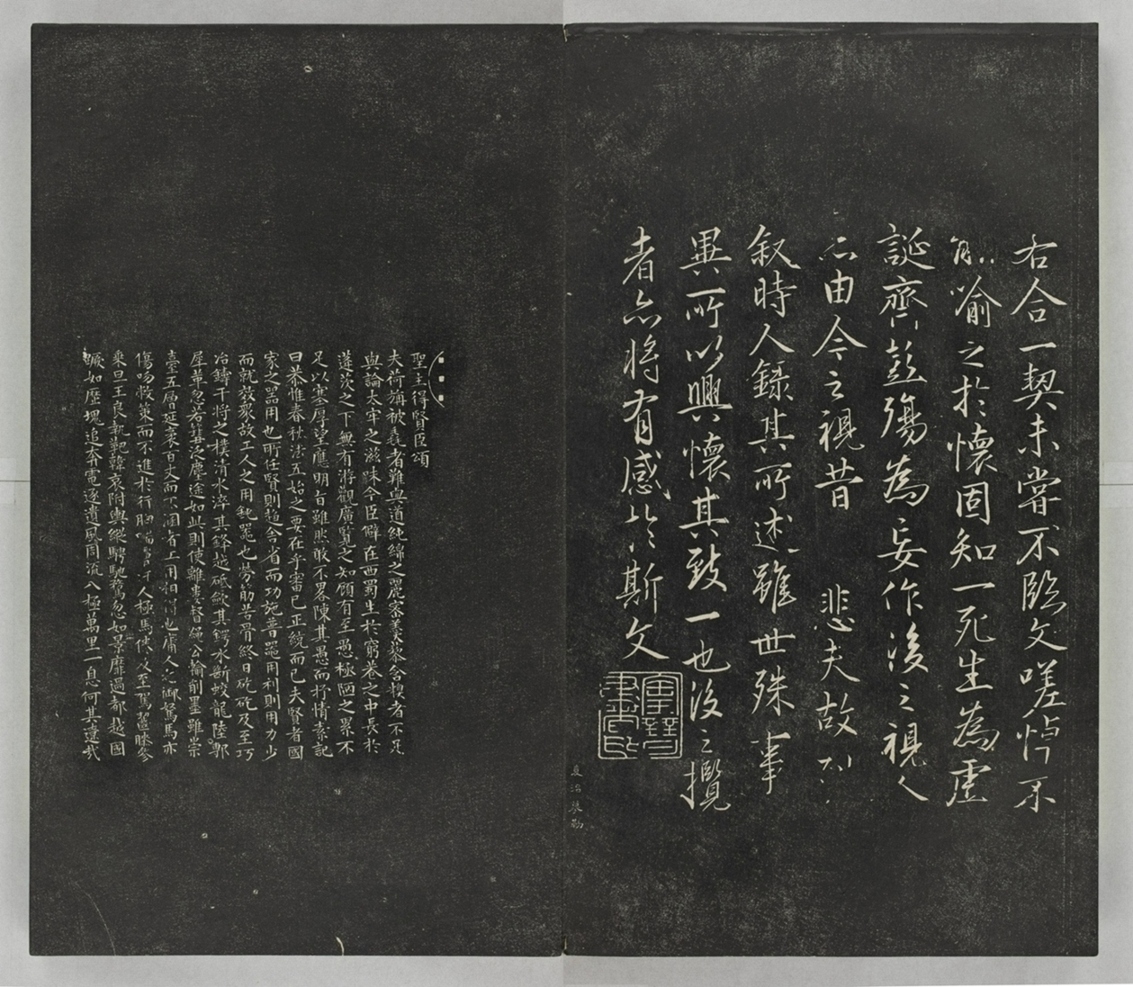 右合一契未甞不臨文嗟悼不
能喻之於懷固知一死生為虛
誕齊彭殤為妄作後之視今
亦由今之視昔 悲夫故列
叙時人録其所述雖世殊事
異所以興懷其致一也後之攬
者亦將有感於斯文
聖主得賢臣頌
夫荷旃被毳者難與道純綿之麗密羹藜含糗者不足
與論太牢之滋味今臣僻在西蜀生於窮巷之中長於
蓬茨之下無有游觀廣覽之知顧有至愚極陋之累不
足以塞厚望應明旨雖然敢不略陳其愚而抒情素記
曰恭惟春秋法五始之要在乎審己正統而已夫賢者國
家之器用也所任賢則趨舍省而功施普器用利則用力少
而就效衆故工人之用鈍器也勞筋苦骨終日矻矻及至巧
冶鑄干將之樸清水淬其鋒越砥斂其鍔水斷蛟龍陸剸
犀革忽若篲汜塵塗如此則使離婁督繩公輸削墨雖崇
臺五層延袤百丈而不溷者工用相得也庸人之御駑馬亦
傷吻敝策而不進於行胸喘膚汗人極馬倦及至駕齧膝參
乘旦王良執靶韓哀附輿縱騁馳騖忽如景靡過都越國
蹶如歷塊追奔電逐遺風周流八極萬里一息何其遼哉